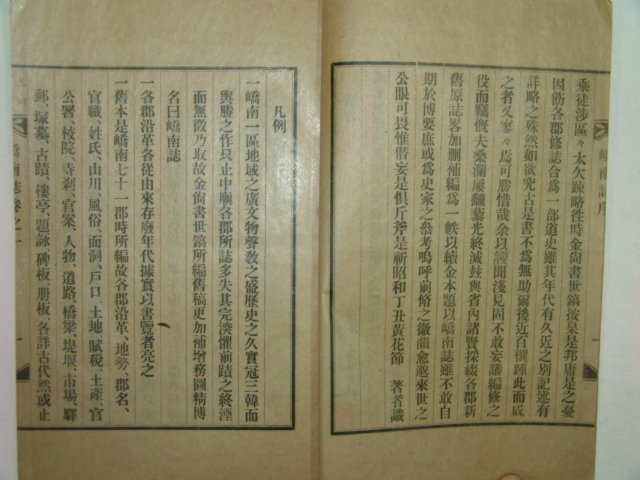 嶠南誌序
乘徒涉區々太欠踈略徃時金尙書世鎬按臬是邦庸是之憂
因飭各郡修誌合爲一部道史雖其年代有久近之別記述有
詳略之殊然如欲究古是書不爲無助爾後近百禩踵此而成
之者又寥々焉可勝惜哉余以謏聞淺見固不敢妄議編修之
役而竊慨夫桑瀾屢飜藜光終滅玆與省內諸賢採綴各郡新
舊原誌畧加删補編爲一帙以續金本題以嶠南誌雖不敢自
期於博要庶或爲史家之叅考嗚呼前脩之徽韻愈邈來世之
公眼可畏惟僣妄是俱斤斧是祈昭和丁丑黃花節 著者識
凡例
一嶠南一區地域之廣文物聲敎之盛歷史之久實冠三韓而
輿勝之作只止中廟各郡所誌多失其完滾懼前蹟之終湮
而無徵乃取故金尙書世鎬所編舊稿更加補增務圖精博
名曰嶠南誌
一各郡沿革各從由來存廢年代據實以書覽者亮之
一舊本是嶠南七十一郡時所編故各郡沿革、地勢、郡名、
官職、姓氏、山川、風俗、面洞、戶口、土地、賦稅、土產、官
公署、校院、寺刹、官案、人物、道路、橋梁、堤堰、市場、驛
郵、塚墓、古蹟、樓亭、題詠、碑板、册板、各詳古代然或止
嶠南誌卷之一